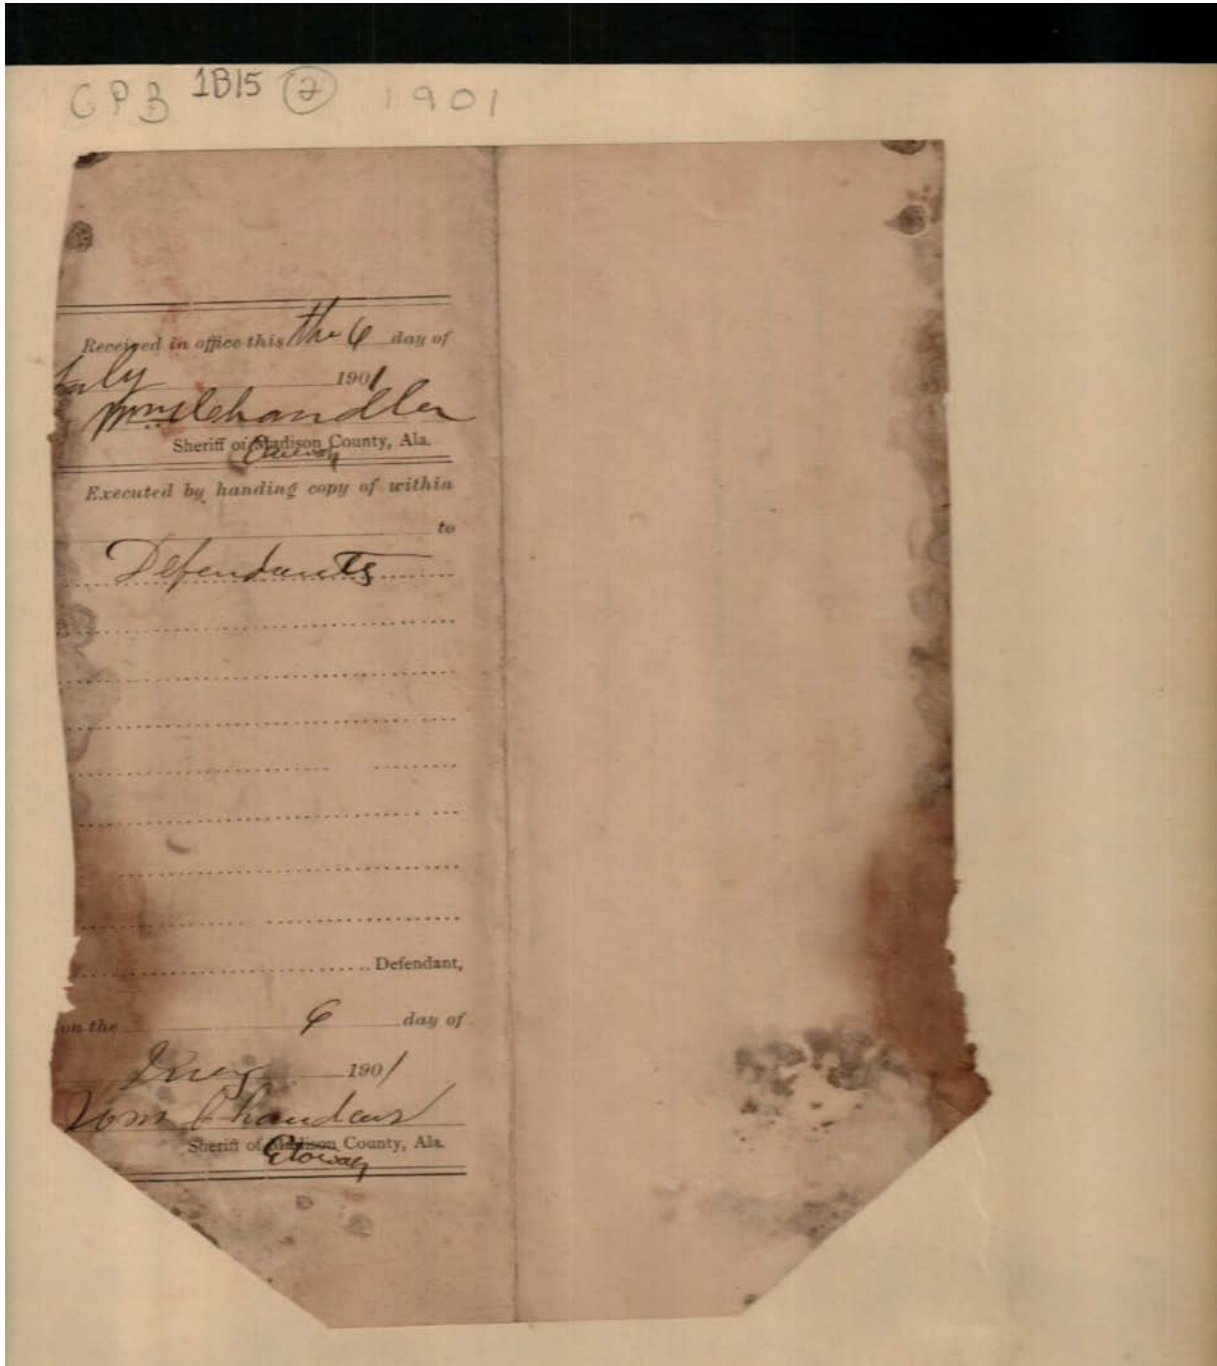 CPB 1B15 2 1901
Received in office this the 6 day of
July 1901
Wm Chandler
Sheriff of Madison County, Ala.
Etowah
Executed by handing copy of within
to
Defendants
Defendant,
on the 6 day of
1901
Wm Chandler
Sheriff of Madison County, Ala.
Etowah